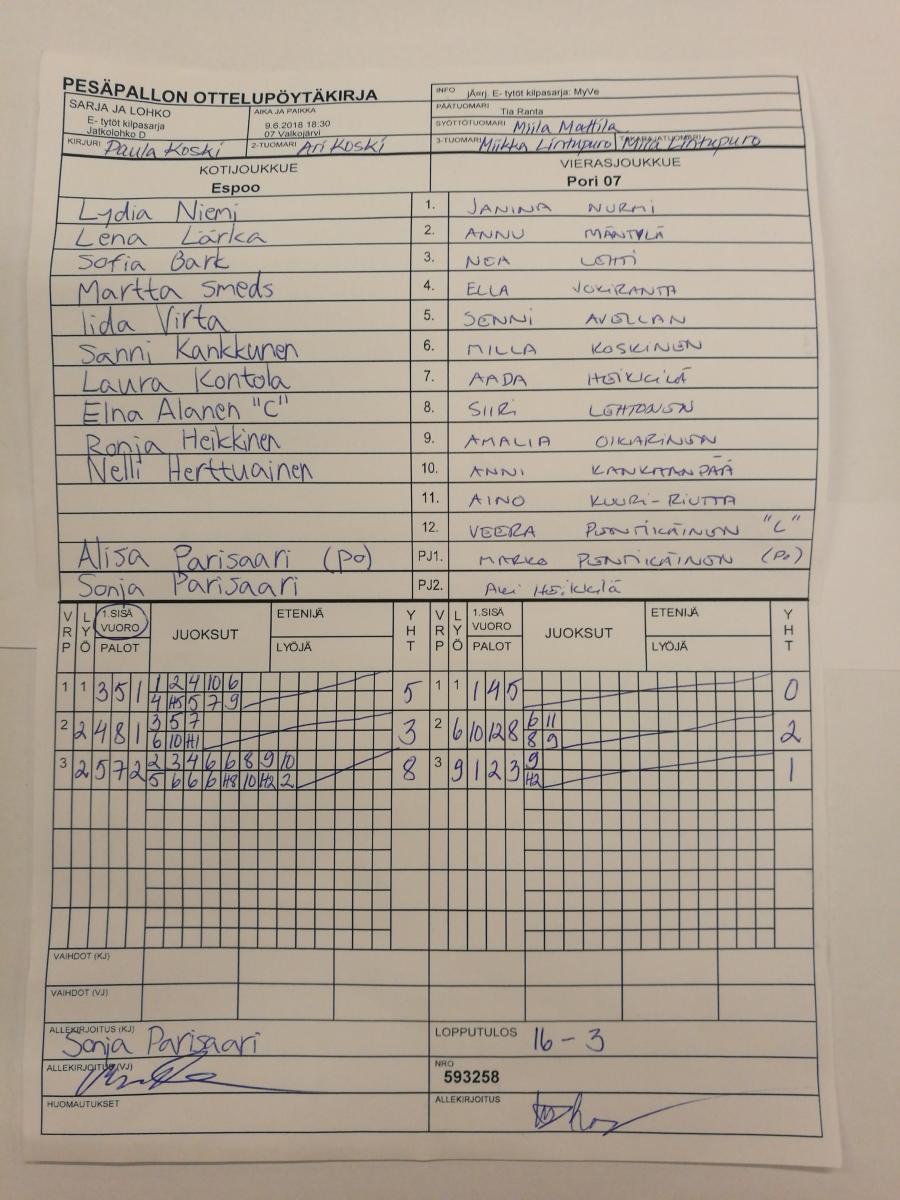 PESÄPALLON OTTELUPÖYTÄKIRJA
INFO jÄ¤rj. E- tytöt kilpasarja: MyVe
SARJA JA LOHKO
E- tytöt kilpasarja
Jatkolohko D
AIKA JA PAIKKA
9.6.2018 18:30
07 Valkojärvi
PÄÄTUOMARI Tia Ranta
SYÖTTÖTUOMARI Miila Mattila
KIRJURI Paula Koski
2-TUOMARI Ari Koski
3-TUOMARI Miikka Lintupuro
TAKARAJATUOMARI Miia Lintupuro
KOTIJOUKKUE
Espoo
VIERASJOUKKUE
Pori 07
Lydia Niemi 1. JANINA NURMI
Lena Lärka 2. ANNU MÄNTYLÄ
Sofia Bark 3. NEA LEHTI
Martta Smeds 4. ELLA JOKIRANTA
Iida Virta 5. SENNI AVELLAN
Sanni Kankkunen 6. MILLA KOSKINEN
Laura Kontola 7. AADA HEIKKILÄ
Elna Alanen "C" 8. SIIRI LEHTONEN
Ronja Heikkinen 9. AMALIA OIKARINEN
Nelli Herttuainen 10. ANNI KANKAANPÄÄ
11. AINO KUURI-RIUTTA
12. VEERA PENTIKÄINEN "C"
Alisa Parisaari (po) PJ1. MARKO PENTIKÄINEN (po)
Sonja Parisaari PJ2. HEIKKILÄ
VRP LYÖ 1.SISÄ VUORO PALOT JUOKSUT ETENIJÄ LYÖJÄ YHT VRP LYÖ 1.SISÄ VUORO PALOT JUOKSUT ETENIJÄ LYÖJÄ YHT
1 1 3 5 1 1 2 4 10 6 5 1 1 1 4 5 0
4 H5 5 7 9
2 2 4 8 1 3 5 7 3 2 6 10 12 8 6 11 2
6 10 H1 8 9
3 2 5 7 2 2 3 4 6 6 8 9 10 8 3 9 1 2 3 9 1
5 6 6 6 H8 10 H2 2 H2
VAIHDOT (KJ)
VAIHDOT (VJ)
ALLEKIRJOITUS (KJ) Sonja Parisaari
LOPPUTULOS 16 - 3
ALLEKIRJOITUS (VJ)
NRO
593258
HUOMAUTUKSET
ALLEKIRJOITUS